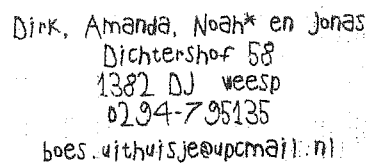 Dirk, Amanda, Noah* en Jonas
Dichtershof 58
1382 DJ Weesp
0294-795135
boes.uithuisje@upcmail.nl